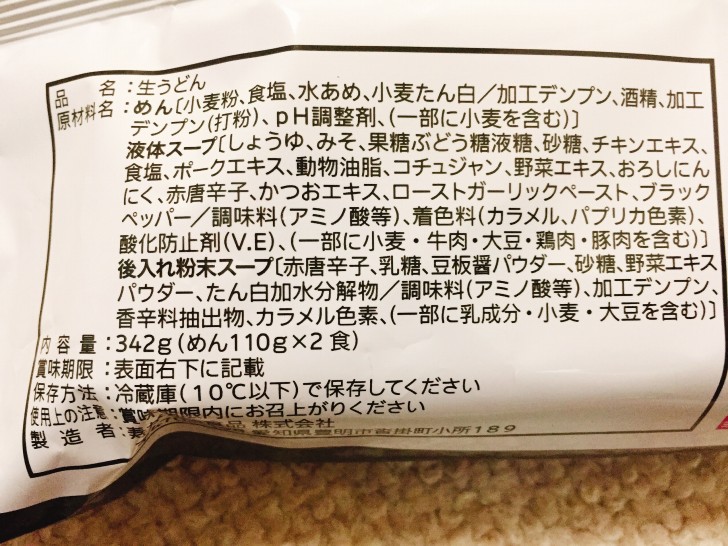 品 名：生うどん
原材料名：めん〔小麦粉、食塩、水あめ、小麦たん白／加工デンプン、酒精、加工
デンプン(打粉)、pH調整剤、(一部に小麦を含む)〕
液体スープ〔しょうゆ、みそ、果糖ぶどう糖液糖、砂糖、チキンエキス、
食塩、ポークエキス、動物油脂、コチュジャン、野菜エキス、おろしにん
にく、赤唐辛子、かつおエキス、ローストガーリックペースト、ブラック
ペッパー／調味料(アミノ酸等)、着色料(カラメル、パプリカ色素)、
酸化防止剤(V.E)、(一部に小麦・牛肉・大豆・鶏肉・豚肉を含む)〕
後入れ粉末スープ〔赤唐辛子、乳糖、豆板醤パウダー、砂糖、野菜エキス
パウダー、たん白加水分解物／調味料(アミノ酸等)、加工デンプン、
香辛料抽出物、カラメル色素、(一部に乳成分・小麦・大豆を含む)〕
内容量：342g(めん110g×2食)
賞味期限：表面右下に記載
保存方法：冷蔵庫(10℃以下)で保存してください
使用上の注意：賞味期限内にお召上がりください
製造者：食品 株式会社
愛知県豊明市沓掛町小所189